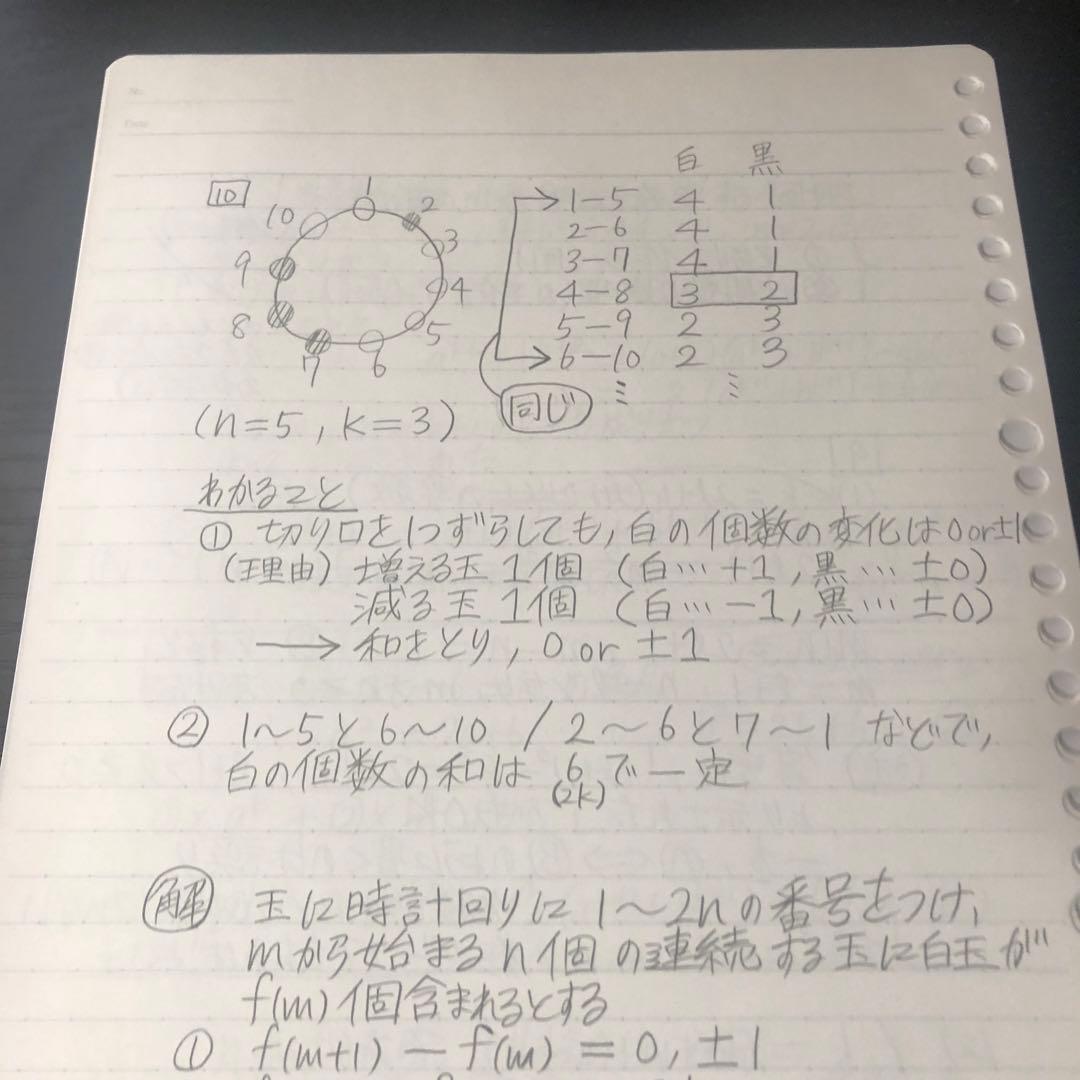 No.
Date
白 黒
10
1
2
3
4
5
6
7
8
9
10
1−5 4 1
2−6 4 1
3−7 4 1
4−8 3 2
5−9 2 3
6−10 2 3
⋮ ⋮
同じ
(n=5, k=3)
わかること
① 切り口を1つずらしても,白の個数の変化は0or±1
(理由) 増える玉 1個 (白…+1, 黒…±0)
減る玉 1個 (白…−1, 黒…±0)
⟶ 和をとり, 0 or ±1
② 1〜5と6〜10 / 2〜6と7〜1 などで,
白の個数の和は 6で一定
(2k)
解 玉に時計回りに 1〜2nの番号をつけ,
mから始まるn個の連続する玉に白玉が
f(m)個含まれるとする
① f(m+1) − f(m) = 0, ±1